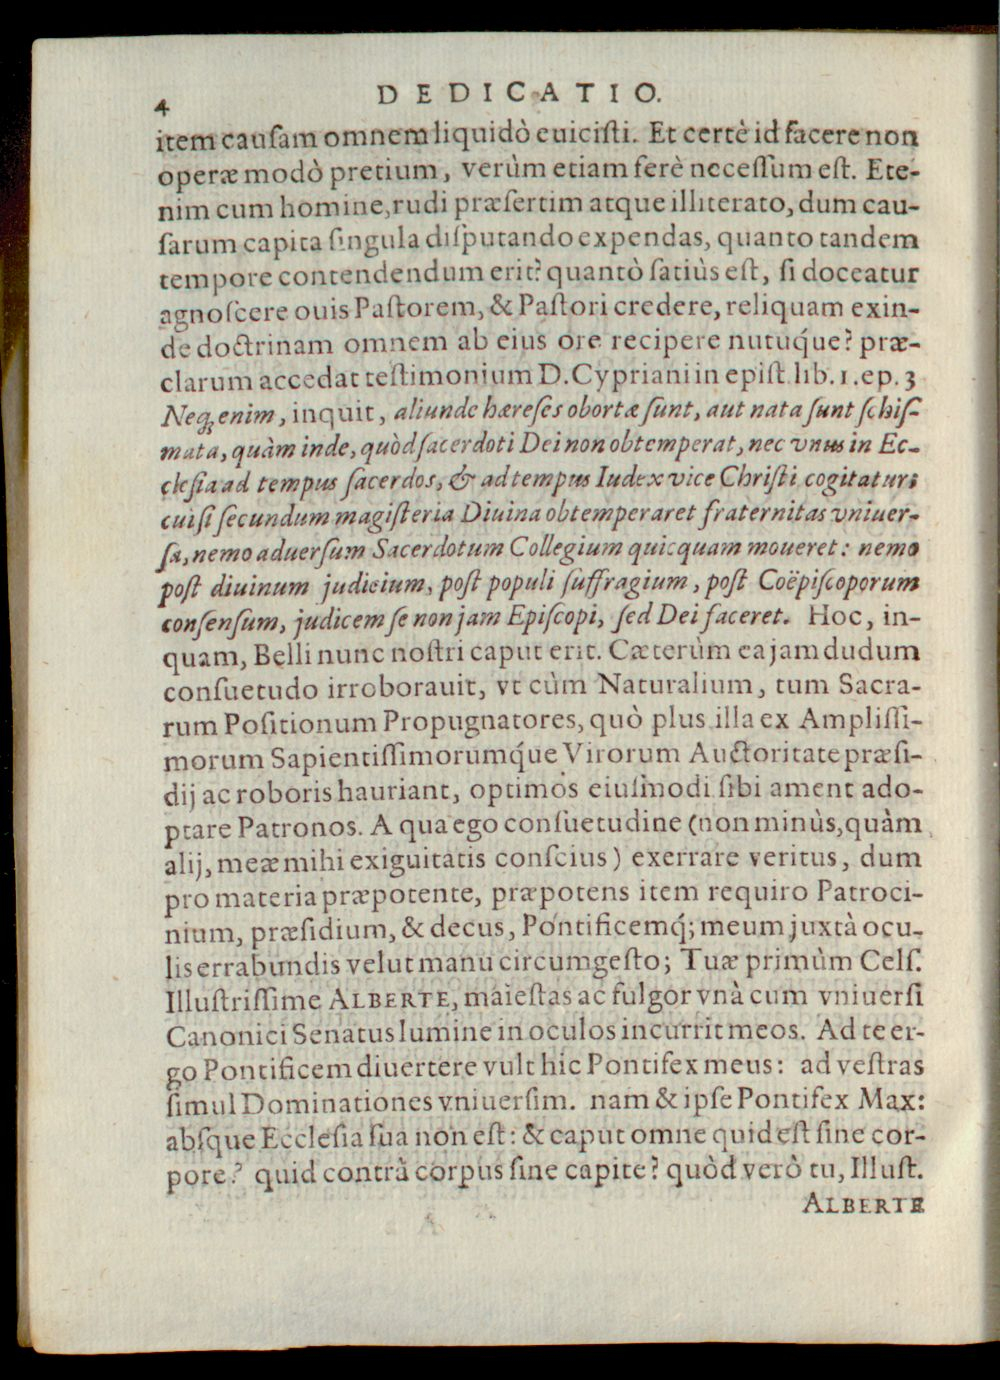 4 DEDICATIO.
item causam omnem liquidò euicisti. Et certè id facere non
operæ modò pretium, verùm etiam ferè necessum est. Ete-
nim cum homine, rudi præsertim atque illiterato, dum cau-
sarum capita singula disputando expendas, quanto tandem
tempore contendendum erit? quantò satiùs est, si doceatur
agnoscere ouis Pastorem, & Pastori credere, reliquam exin-
de doctrinam omnem ab eius ore recipere nutuq́ue? præ-
clarum accedat testimonium D. Cypriani in epist. lib. 1. ep. 3
Neq; enim, inquit, aliunde hæreses obortæ sunt, aut nata sunt schis-
mata, quàm inde, quòd sacerdoti Dei non obtemperat, nec vnus in Ec-
clesia ad tempus sacerdos, & ad tempus Iudex vice Christi cogitatur:
cui si secundum magisteria Diuina obtemperaret fraternitas vniuer-
sa, nemo aduersum Sacerdotum Collegium quicquam moueret: nemo
post diuinum judicium, post populi suffragium, post Coëpiscoporum
consensum, judicem se non jam Episcopi, sed Dei faceret. Hoc, in-
quam, Belli nunc nostri caput erit. Cæterùm ea jam dudum
consuetudo irroborauit, vt cùm Naturalium, tum Sacra-
rum Positionum Propugnatores, quò plus illa ex Amplissi-
morum Sapientissimorumq́ue Virorum Auctoritate præsi-
dij ac roboris hauriant, optimos eiusmodi sibi ament ado-
ptare Patronos. A qua ego consuetudine (non minùs, quàm
alij, meæ mihi exiguitatis conscius) exerrare veritus, dum
pro materia præpotente, præpotens item requiro Patroci-
nium, præsidium, & decus, Pontificemq́; meum juxtà ocu-
lis errabundis velut manu circumgesto; Tuæ primùm Cels.
Illustrissime ALBERTE, maiestas ac fulgor vnà cum vniuersi
Canonici Senatus lumine in oculos incurrit meos. Ad te er-
go Pontificem diuertere vult hic Pontifex meus: ad vestras
simul Dominationes vniuersim. nam & ipse Pontifex Max:
absque Ecclesia sua non est: & caput omne quid est sine cor-
pore? quid contrà corpus sine capite? quòd verò tu, Illust.
ALBERTE